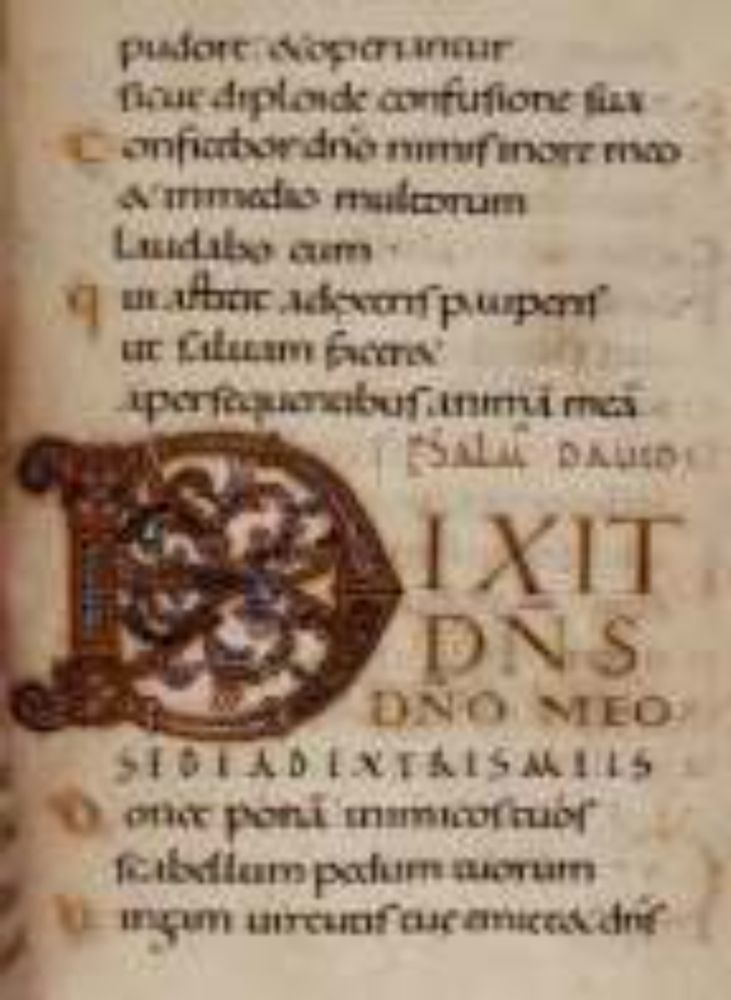 pudore & operiantur
sicut diploide confusione sua
Confitebor dnō nimis in ore meo
& in medio multorum
laudabo eum
qui astitit a dextris pauperis
ut saluam facer&
a persequentibus animā meā
PSALM DAUID
DIXIT
DN̄S
DN̄O MEO
SEDE A DEXTRIS MEIS
Donec ponā inimicos tuos
scabellum pedum tuorum
Uirgam uirtutis tuae emitt& dn̄s